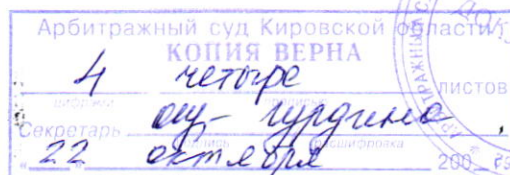 Арбитражный суд Кировской области
КОПИЯ ВЕРНА
4 четыре листов
цифрами прописью
Секретарь
подпись расшифровка
"22" октября 200 г.